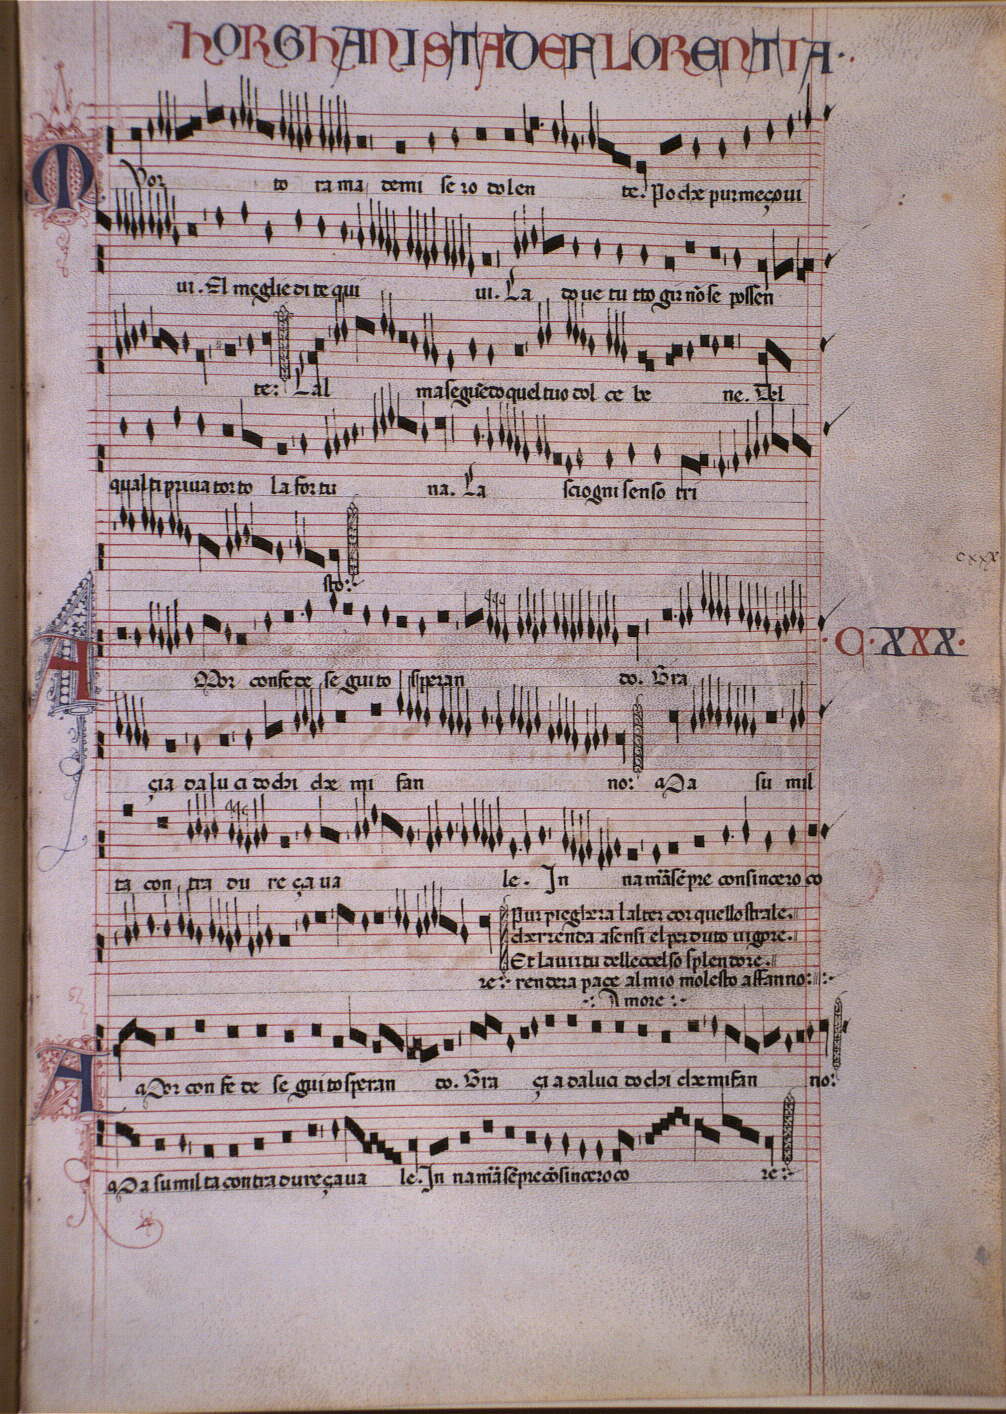 hORGhANISTA DE FLORENTIA.
Mor to ra ma demi se ro dolen te. Poche pur meço ui
ui. El meglie di te qui ui. La doue tu tto gir nōse possen
te: Lal ma seguēdo quel tuo dol ce be ne. Del
qual ti priua torto la for tu na. La scio gni senso tri
sto:
C.XXX.
AMor con fe de se gui to isperan do. Gra
çia da lu ci do chi che mi fan no: Ma su mil
ta con tra du re ça ua le. In na mā sēpre con sincero co
Pur piegherà lalter cor quello strale.
che rrenda a sensi el perduto uigore.
Et la uirtu delleccelso splendore.
re: rendera pace al mio molesto affanno:
Amore
AMor con fe de se gui to speran do. Gra çi a da luci do chi che mi fan no:
Ma su mil ta con tra du re ça ua le. In na mā sēpre cō sincero co re: